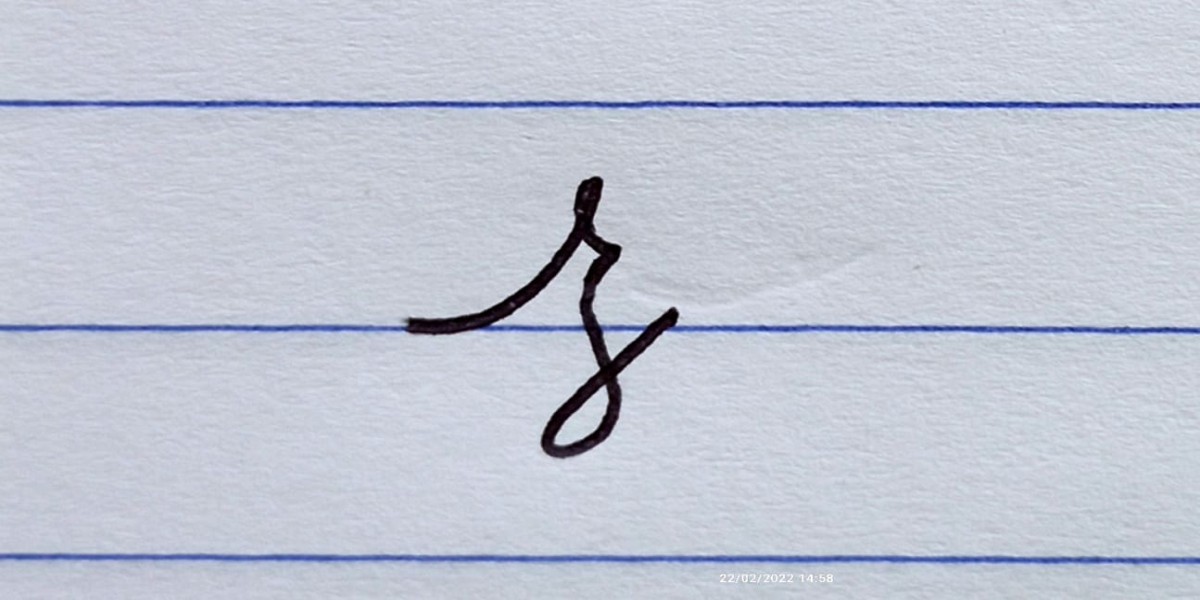 z
22/02/2022 14:58